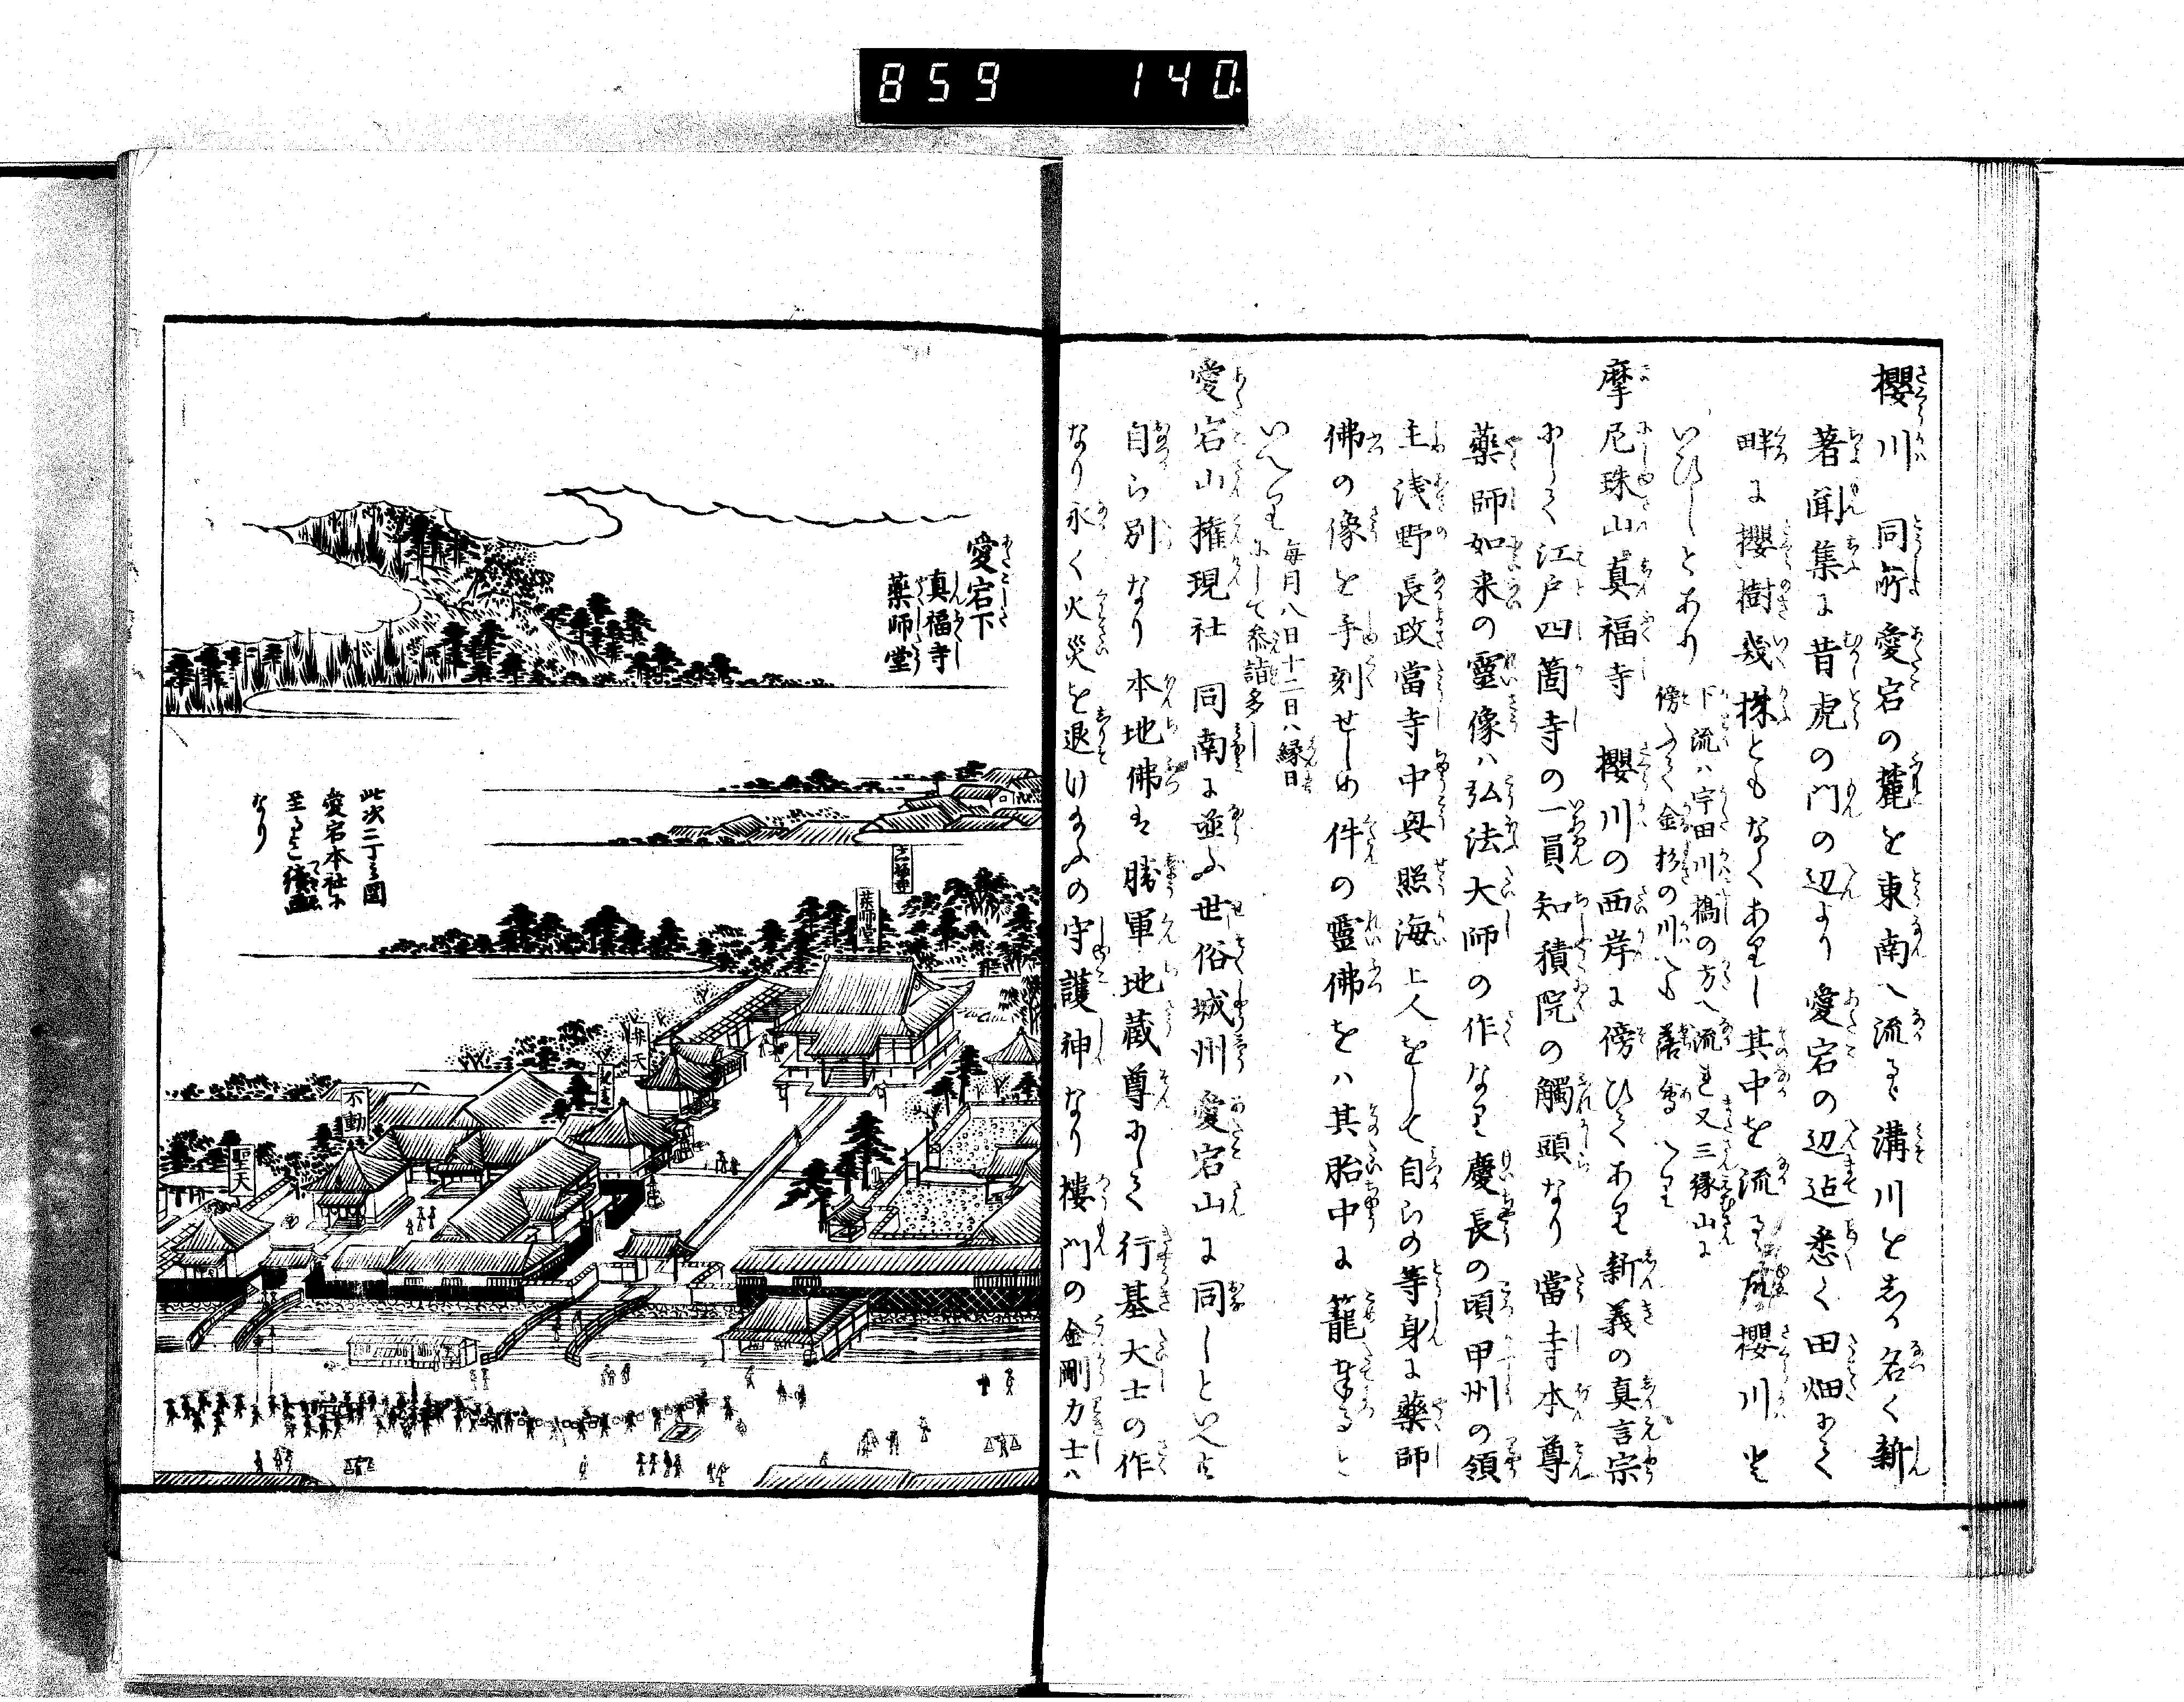 859 140
櫻川 同所愛宕の麓を東南へ流るゝ溝川をしか名く新
著聞集に昔虎の門の辺より愛宕の辺迄悉く田畑にて
畔に櫻樹幾株ともなくありし其中を流るゝ 櫻川と
いひしとあり
下流ハ宇田川橋の方へ流れ又三縁山に
傍ふて金杉の川へも落合へり
摩尼珠山真福寺 櫻川の西岸に傍ひてあり新義の真言宗
にして江戸四箇寺の一員知積院の觸頭なり當寺本尊
藥師如来の靈像ハ弘法大師の作なり慶長の頃甲州の領
主浅野長政當寺中興照海上人をして自らの等身に藥師
佛の像を手刻せしめ件の靈佛をハ其胎中に籠奉ると
いへり
毎月八日十二日ハ縁日
にして参詣多し
愛宕山権現社 同南に並ふ世俗城州愛宕山に同しといへとも
自ら別なり本地佛は勝軍地蔵尊にして行基大士の作
なり永く火災を退け給ふの守護神なり樓門の金剛力士ハ
愛宕下
真福寺
薬師堂
此次三丁の圖
愛宕本社に
至るまて續畫
なり
薬師堂
弁天
不動
聖天